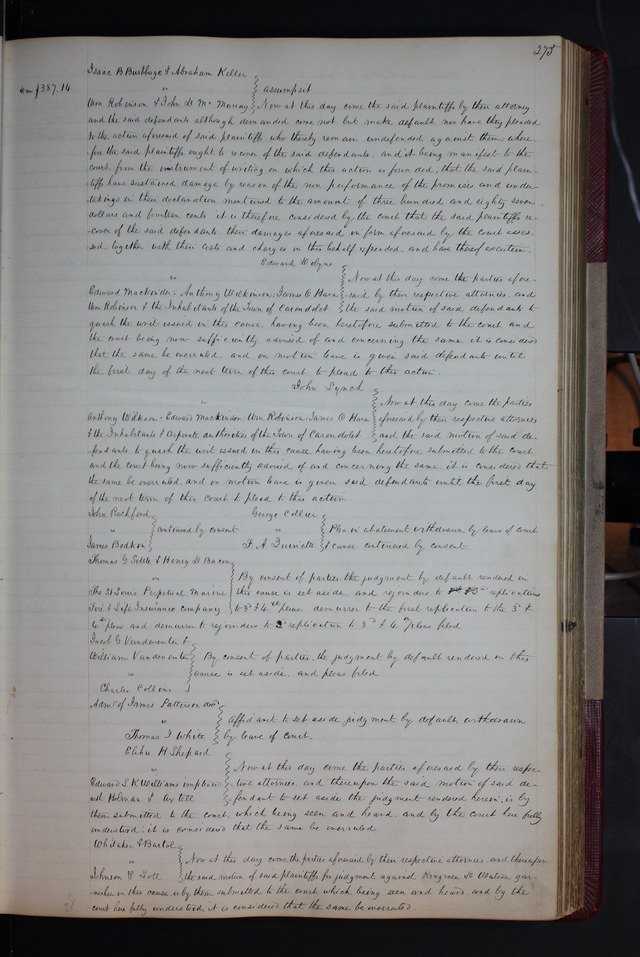 275
Isaac B Burbbage & Abraham Keller
Dam $387.14
vs
assumpsit
Wm Robinson & John D Mc Murray Now at this day come the said plaintiffs by their attorney
and the said defendants although demanded come not but make default nor have they pleaded
to the action aforesaid of said plaintiffs who thereby remain undefended against them: where-
fore the said plaintiffs ought to recover of the said defendants. and it being manifest to the
court, from the instrument of writing on which this action is founded, that the said plain-
tiffs have sustained damage by reason of the non performance of the promises and under-
takings in their declaration mentioned to the amount of three hundred and eighty seven
dollars and fourteen cents it is therefore considered by the court that the said plaintiffs re-
cover of the said defendants their damages aforesaid in form aforesaid by the court asses-
sed together with their costs and charges in this behalf expended. and have thereof execution.
Edward
vs
Now at this day come the parties afore-
Edward Mackinder. Anthony Wilkinson; James O Hara said by their respective attornies. and
Wm Robinson & the Inhabitants of the Town of Carondolet the said motion of said defendants to
quash the writ issued in this cause, having been heretofore submitted to the court and
the court being now sufficiently advised of and concerning the same it is considered
that the same be overruled. and on motion leave is given said defendants until
the first day of the next term of this court to plead to this action.
John Lynch
vs
Now at this day come the parties
Anthony Wilkinson; Edward Mackinder Wm Robinson; James O Hara aforesaid by their respective attornies
& the Inhabitants & Corporate authorities of the Town of Carondolet and the said motion of said de-
fendants to quash the writ issued in this cause having been heretofore submitted to the court
and the court being now sufficiently advised of and concerning the same. it is considered that
the same be overruled. and on motion leave is given said defendants until the first day
of the next term of this court to plead to this action.
John Rochford
vs
continued by consent
James
George Collier
vs
Plea in abatement withdrawn by leave of court
F. A & cause continued by consent
Thomas G Settle & Henry D Bacon
vs
By consent of parties the judgment by default rendered in
The St Louis Perpetual Marine this cause is set aside. and rejoinders to replications
Fire & Life Insurance Company to 3d & 4th pleas. demurrer to the first replication to the 3d &
4th pleas and demurrer to rejoinders to replication to 3d & 4th pleas filed
Jacob G Vandeventer &
William Vandeventer By consent of parties. the judgment by default rendered in this
vs
cause is set aside. and pleas filed
Charles Collins
Admr of James Patterson decd
vs
Affidavit to set aside judgment by default withdrawn
Thomas J White by leave of court.
Elihu H Shepard
vs
Now at this day come the parties aforesaid by their respec-
Edward L K Williams impleaded tive attornies. and thereupon the said motion of said de-
with Holman & Axtell fendant to set aside the judgment rendered herein is by
them submitted to the court. which being seen and heard. and by the court here fully
understood; it is considered that the same be overruled
Whitaker & Bartol
vs
Now at this day come the parties aforesaid by their respective attornies. and thereupon
Johnson & the said motion of said plaintiffs for judgment against Ringrose D Watson gar-
nishee in this cause is by them submitted to the court. which being seen and heard and by the
court here fully understood, it is considered that the same be overruled.